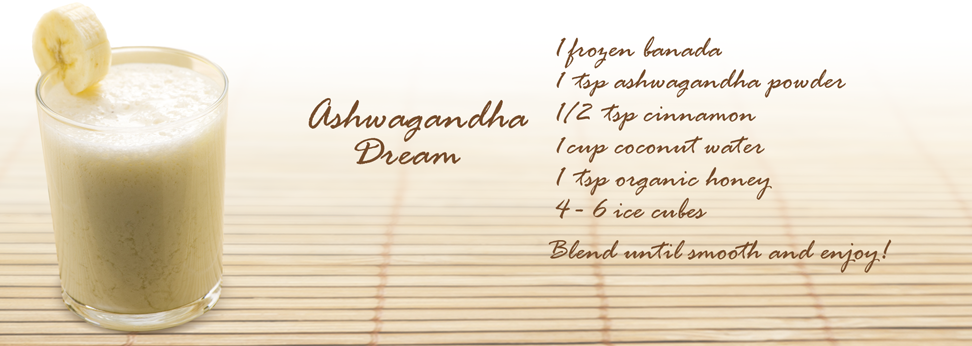 Ashwagandha
Dream
1 frozen banada
1 tsp ashwagandha powder
1/2 tsp cinnamon
1 cup coconut water
1 tsp organic honey
4 - 6 ice cubes
Blend until smooth and enjoy!